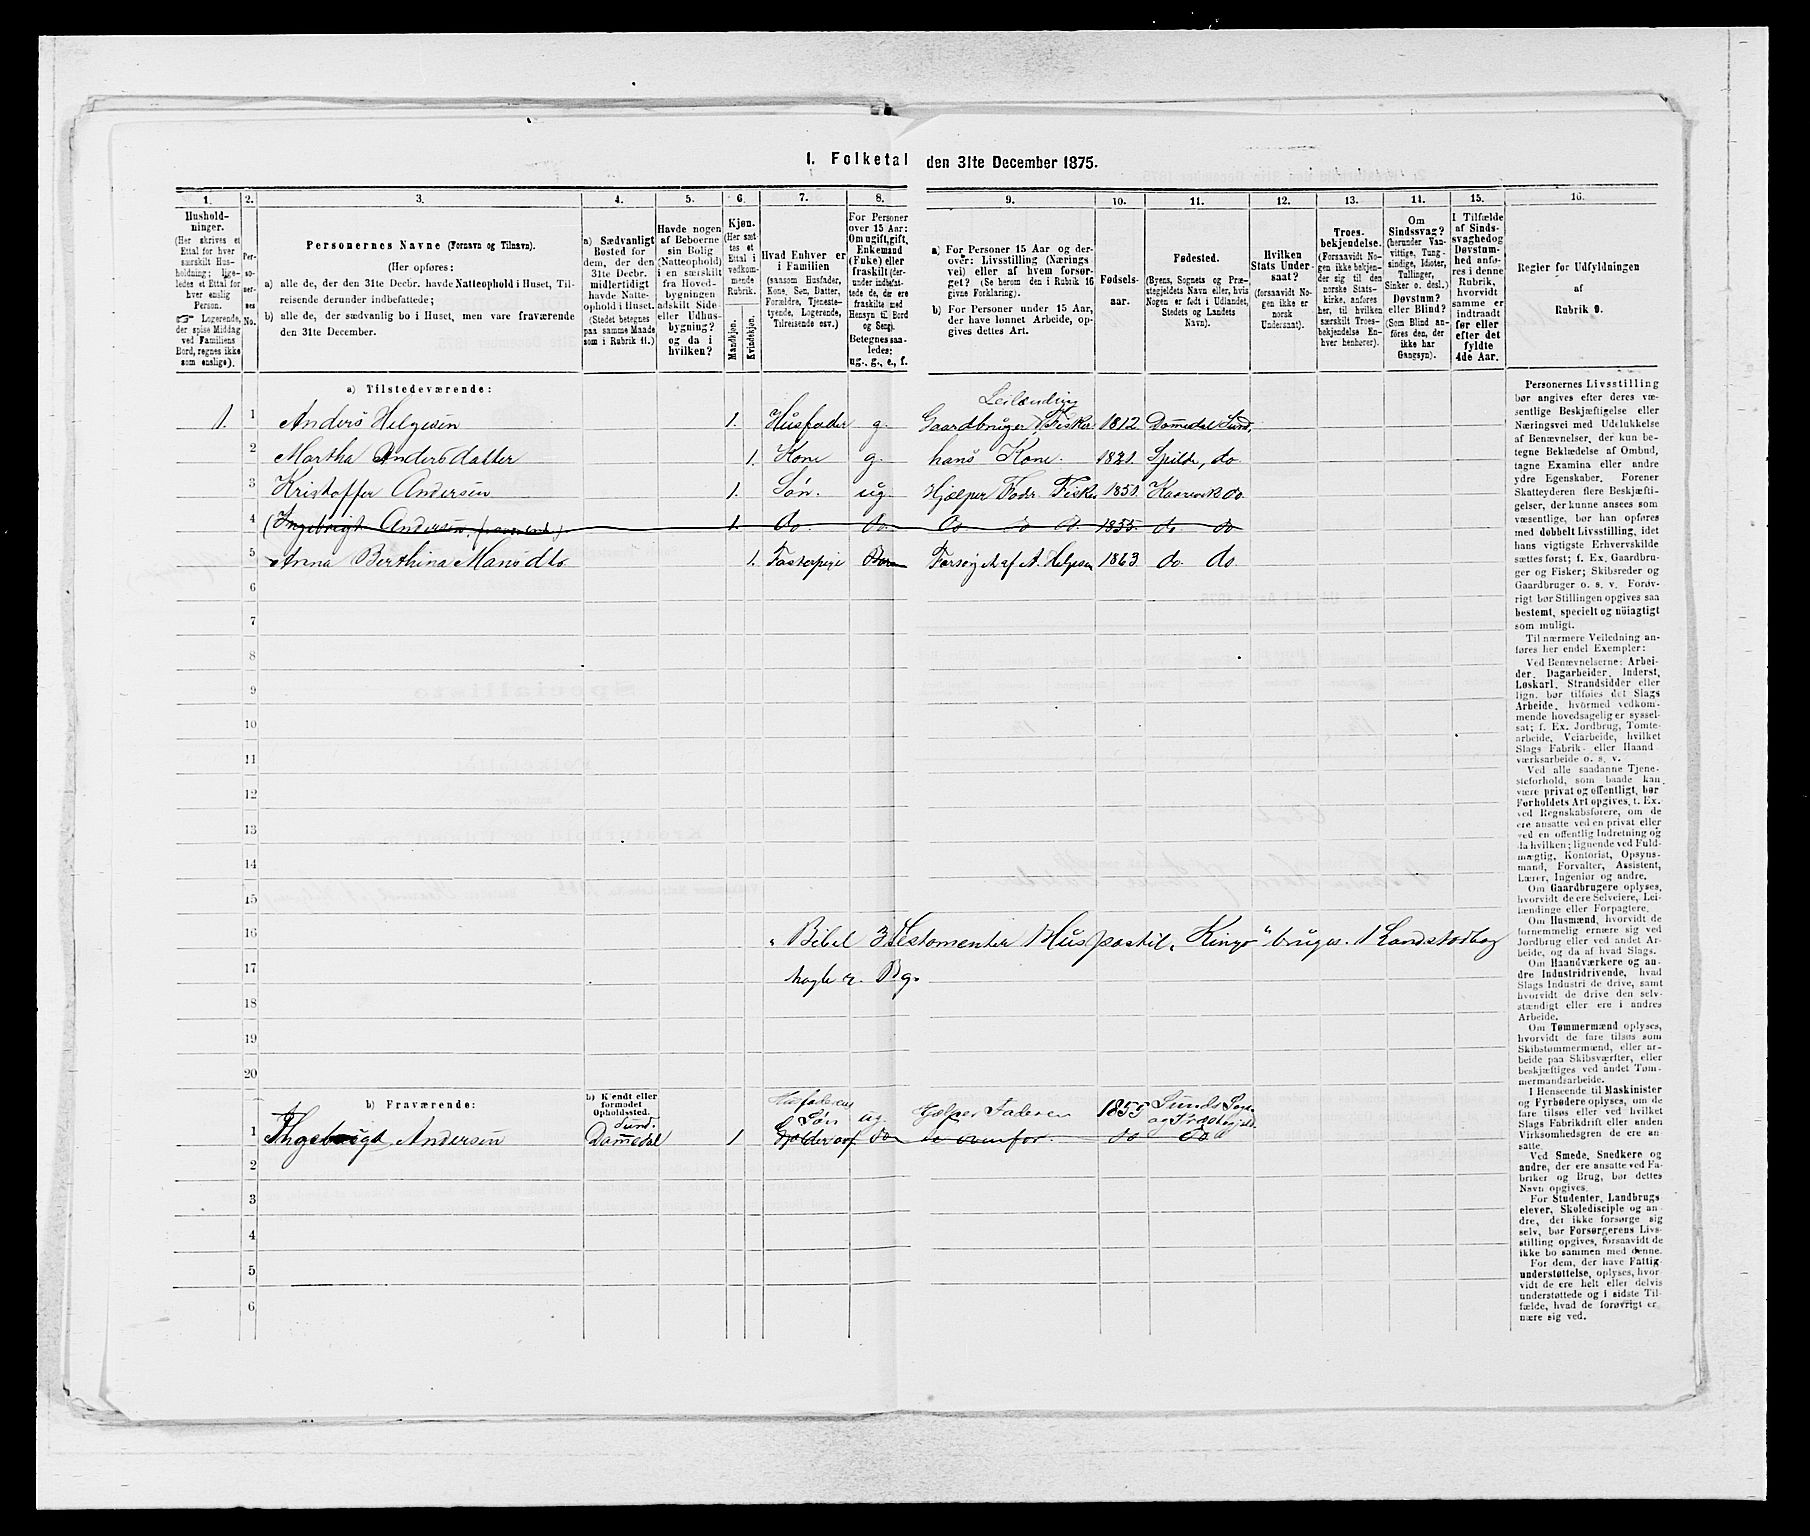 I. Folketal den 31te December 1875.
1. 2. 3. 4. 5. 6. 7. 8. 9. 10. 11. 12. 13. 11. 15. 16.
Hushold-
ninger.
(Her skrives et
Ettal for hver
særskilt Hus-
holdning; lige-
ledes et Ettal for
hver enslig
Person.
☞ Logerende,
der spise Middag
ved Familiens
Bord, regnes ikke
som enslige).
Per-
so-
ner-
nes
No.
Personernes Navne (Fornavn og Tilnavn).
(Her opføres:
a) alle de, der den 31te Decbr. havde Natteophold i Huset, Til-
reisende derunder indbefattede;
b) alle de, der sædvanlig bo i Huset, men vare fraværende
den 31te December.
a) Sædvanligt
Bosted for
dem, der den
31te Decbr.
midlertidigt
havde Natte-
ophold i Huset.
(Stedet betegnes
paa samme Maade
som i Rubrik 11.)
Havde nogen
af Beboerne
sin Bolig
(Natteophold)
i en særskilt
fra Hoved-
bygningen
adskilt Side-
eller Udhus-
bygning?
og da i
hvilken?
Kjøn.
(Her sæt-
tes et
Ettal i
vedkom-
mende
Rubrik.
Mandkjøn.
Kvindekjøn.
Hvad Enhver er
i Familien
(saasom Husfader,
Kone, Søn, Datter,
Forældre, Tjeneste-
tyende, Logerende,
Tilreisende osv.)
For Personer
over 15 Aar:
Om ugift, gift,
Enkemand
(Enke) eller
fraskilt (der-
under indbefat-
tede de, der ere
fraskilte med
Hensyn til Bord
og Seng).
Betegnes saa-
ledes:
ug., g., e., f.
a) For Personer 15 Aar og der-
over: Livsstilling (Nærings-
vei) eller af hvem forsør-
get? (Se herom den i Rubrik 16
givne Forklaring).
b) For Personer under 15 Aar,
der have lønnet Arbeide, op-
gives dettes Art.
Fødsels-
aar.
Fødested.
(Byens, Sognets og Præ-
stegjeldets Navn eller, hvis
Nogen er født i Udlandet,
Stedets og Landets
Navn).
Hvilken
Stats Under-
saat?
(forsaavidt No-
gen ikke er
norsk
Undersaat).
Troes-
bekjendelse.
(Forsaavidt No-
gen ikke bekjen-
der sig til den
norske Stats-
kirke, anføres
her, til hvilken
særskilt Troes-
bekjendelse En-
hver henhører).
Om
Sindssvag?
(herunder Van-
vittige, Tung-
sindige, Idioter,
Tullinger,
Sinker o. desl.)
Døvstum?
eller Blind?
(Som Blind an-
føres den, der
ikke har
Gangsyn).
I Tilfælde
af Sinds-
svaghed og
Døvstum-
hed anfø-
res i denne
Rubrik,
hvorvidt
samme er
indtraadt
før eller
efter det
fyldte
4de Aar.
Regler for Udfyldningen
af
Rubrik 9.
a) Tilstedeværende:
Leilænding
1. 1 Anders Helgesen 1. Husfader g. Gaardbruger, Fisker 1812 Dommedal Sund.
2 Martha Andersdatter 1. Kone g. hans Kone. 1821. Spilde, do
3 Kristoffer Andersen 1. Søn. ug. Hjælper Fader Fisker 1850 do
4 (Ingebrigt Andersen, 1. do do 1855. do do
5 Anna Berthina Mansdtr 1. Fosterpige Barn Forsørget af A. Helgesen 1863 do. do.
6
7
8
9
10
11
12
13
14
15
16 1 Bibel 3 Testomenter 1 Huspostil, "Kingo" bruges. 1 Landstadbog
17
18
19
20
b) Fraværende:
b) Kjendt eller
formodet
Opholdssted.
Husfaderens Sunds Sogn
Sund. Søn ug. Hjælper Faderen 1855 og Præstegjeld
1 Ingebrigt Andersen Dommedal 1 do ovenfor. do do
2
3
4
5
6
Personernes Livsstilling
bør angives efter deres væ-
sentlige Beskjæftigelse eller
Næringsvei med Udelukkelse
af Benævnelser, der kun be-
tegne Beklædelse af Ombud,
tagne Examina eller andre
ydre Egenskaber. Forener
Skatteyderen flere Beskjæfti-
gelser, der kunne ansees som
væsentlige, bør han opføres
med dobbelt Livsstilling, idet
hans vigtigste Erhvervskilde
sættes først; f. Ex. Gaardbru-
ger og Fisker; Skibsreder og
Gaardbruger o. s. v. Forøv-
rigt bør Stillingen opgives saa
bestemt, specielt og nöiagtigt
som muligt.
Til nærmere Veiledning an-
føres her endel Exempler:
Ved Benævnelserne: Arbei-
der, Dagarbeider, Inderst,
Løskarl, Strandsidder eller
lign. bør tilføies det Slags
Arbeide, hvormed vedkom-
mende hovedsagelig er syssel-
sat; f. Ex. Jordbrug, Tomte-
arbeide, Veiarbeide, hvilket
Slags Fabrik- eller Haand-
værksarbeide o. s. v.
Ved alle saadanne Tjene-
steforhold, som baade kan
være privat og offentligt, bør
Forholdets Art opgives, t. Ex.
ved Regnskabsførere, om de
ere ansatte ved en privat eller
ved en offentlig Indretning og
da hvilken; lignende ved Fuld-
mægtig, Kontorist, Opsyns-
mand, Forvalter, Assistent,
Lærer, Ingeniør og andre.
Om Gaardbrugere oplyses,
hvorvidt de ere Selveiere, Lei-
lændinge eller Forpagtere.
Om Husmænd, hvorvidt de
fornemmelig ernære sig ved
Jordbrug eller ved andet Ar-
beide, og da af hvad Slags.
Om Haandværkere og an-
dre Industridrivende, hvad
Slags Industri de drive, samt
hvorvidt de drive den selv-
stændigt eller ere i andres
Arbeide.
Om Tømmermænd oplyses,
hvorvidt de fare tilsøs som
Skibstømmermænd, eller ar-
beide paa Skibsværfter, eller
beskjæftiges ved andet Tøm-
mermandsarbeide.
I Henseende til Maskinister
og Fyrbødere oplyses, om de
fare tilsøs eller ved hvilket
Slags Fabrikdrift eller anden
Virksomhedsgren de ere an-
satte
Ved Smede, Snedkere og
andre, der ere ansatte ved Fa-
briker og Brug, bør dettes
Navn opgives.
For Studenter, Landbrugs-
elever, Skoledisciple og an-
dre, der ikke forsørge sig
selv, bør Forsørgerens Livs-
stilling opgives, forsaavidt de
ikke bo sammen med denne.
For dem, der have Fattig-
understøttelse, oplyses, hvor-
vidt de ere helt eller delvis
understøttede og i sidste Til-
fælde, hvad de forøvrigt er-
nære sig ved.